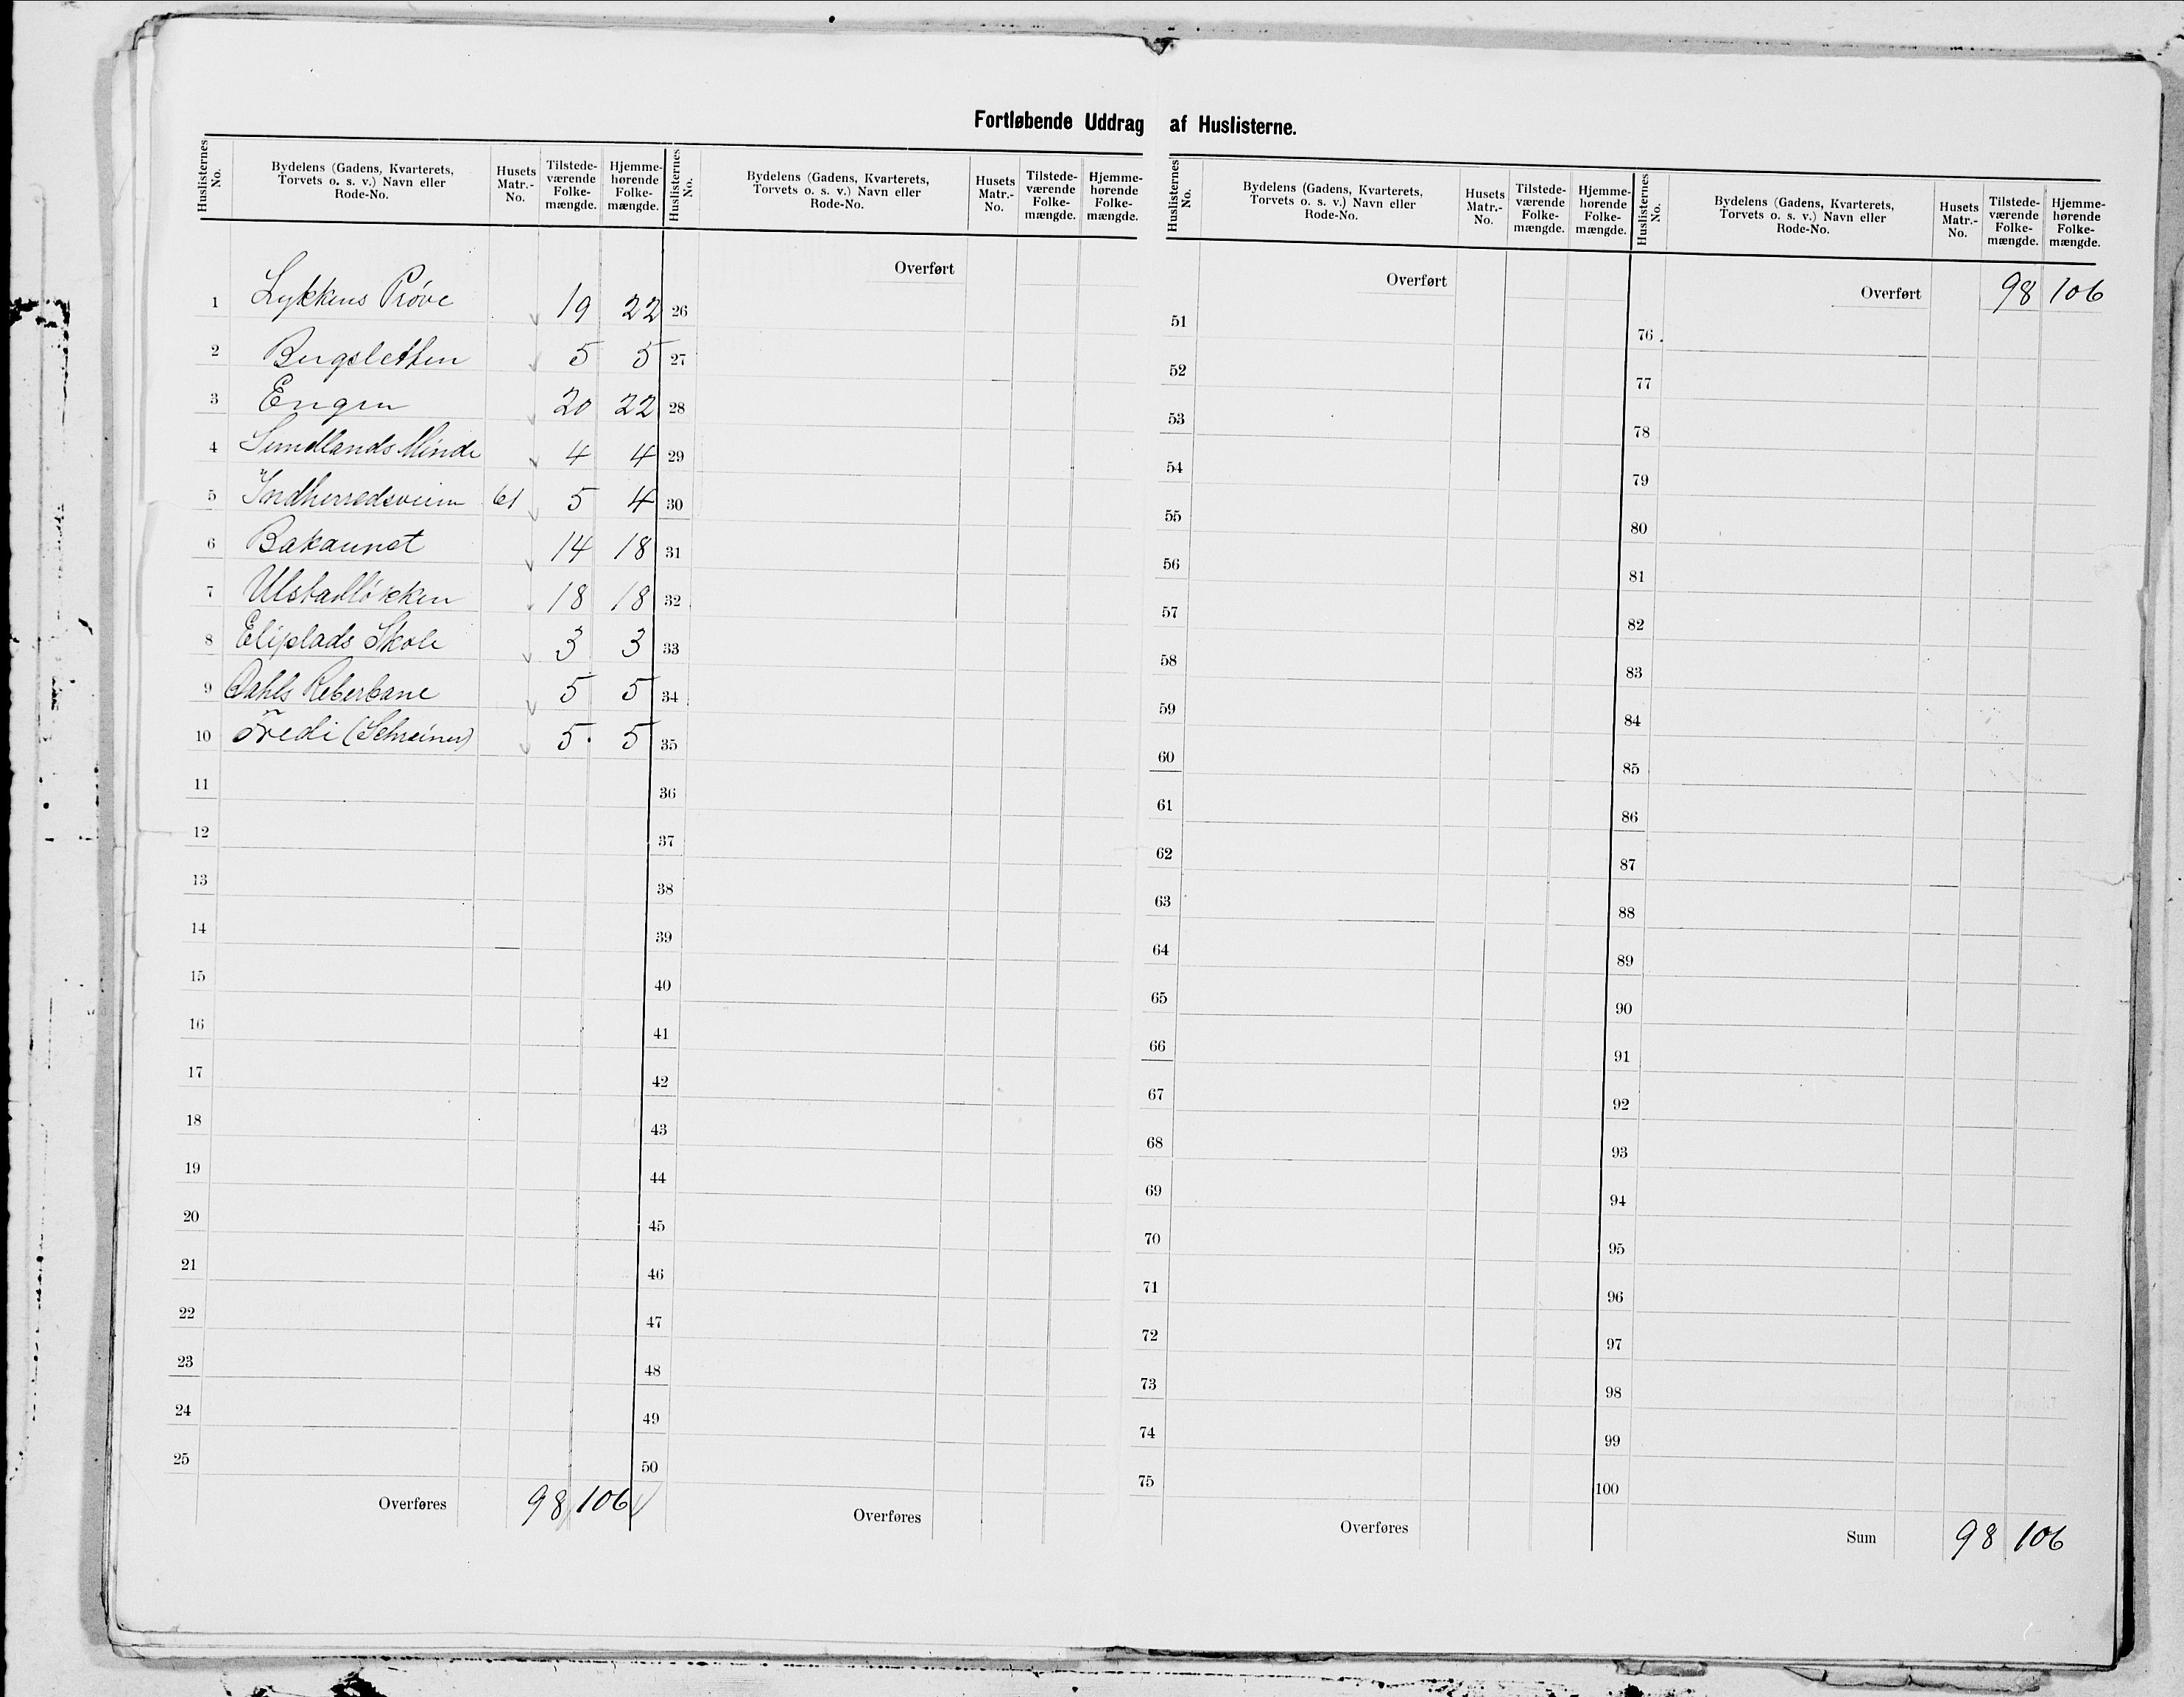 Fortløbende Uddrag af Huslisterne.
Huslisternes No. Bydelens (Gadens, Kvarterets, Torvets o. s. v.) Navn eller Rode-No. Husets Matr.-No. Tilstedeværende Folkemængde. Hjemmehørende Folkemængde.
1 Lykkens Prøve 19 22
2 Bergsletten 5 5
3 Engen 20 22
4 Sundlands Minde 4 4
5 Indherredsveien 61 5 4
6 Bakaunet 14 18
7 Ulstadløkken 18 18
8 Eliplads Skole 3 3
9 Dahls Reberbane 5 5
10 Fredli (Schreiner) 5 5
11
12
13
14
15
16
17
18
19
20
21
22
23
24
25
Overføres 98 106
Huslisternes No. Bydelens (Gadens, Kvarterets, Torvets o. s. v.) Navn eller Rode-No. Husets Matr.-No. Tilstede-værende Folke-mængde. Hjemme-hørende Folke-mængde.
Overført
26
27
28
29
30
31
32
33
34
35
36
37
38
39
40
41
42
43
44
45
46
47
48
49
50
Overføres
Huslisternes No. Bydelens (Gadens, Kvarterets, Torvets o. s. v.) Navn eller Rode-No. Husets Matr.-No. Tilstede-værende Folke-mængde. Hjemme-hørende Folke-mængde.
Overført
51
52
53
54
55
56
57
58
59
60
61
62
63
64
65
66
67
68
69
70
71
72
73
74
75
Overføres
Huslisternes No. Bydelens (Gadens, Kvarterets, Torvets o. s. v.) Navn eller Rode-No. Husets Matr.-No. Tilstede-værende Folke-mængde. Hjemme-hørende Folke-mængde.
Overført 98 106
76
77
78
79
80
81
82
83
84
85
86
87
88
89
90
91
92
93
94
95
96
97
98
99
100
Sum 98 106